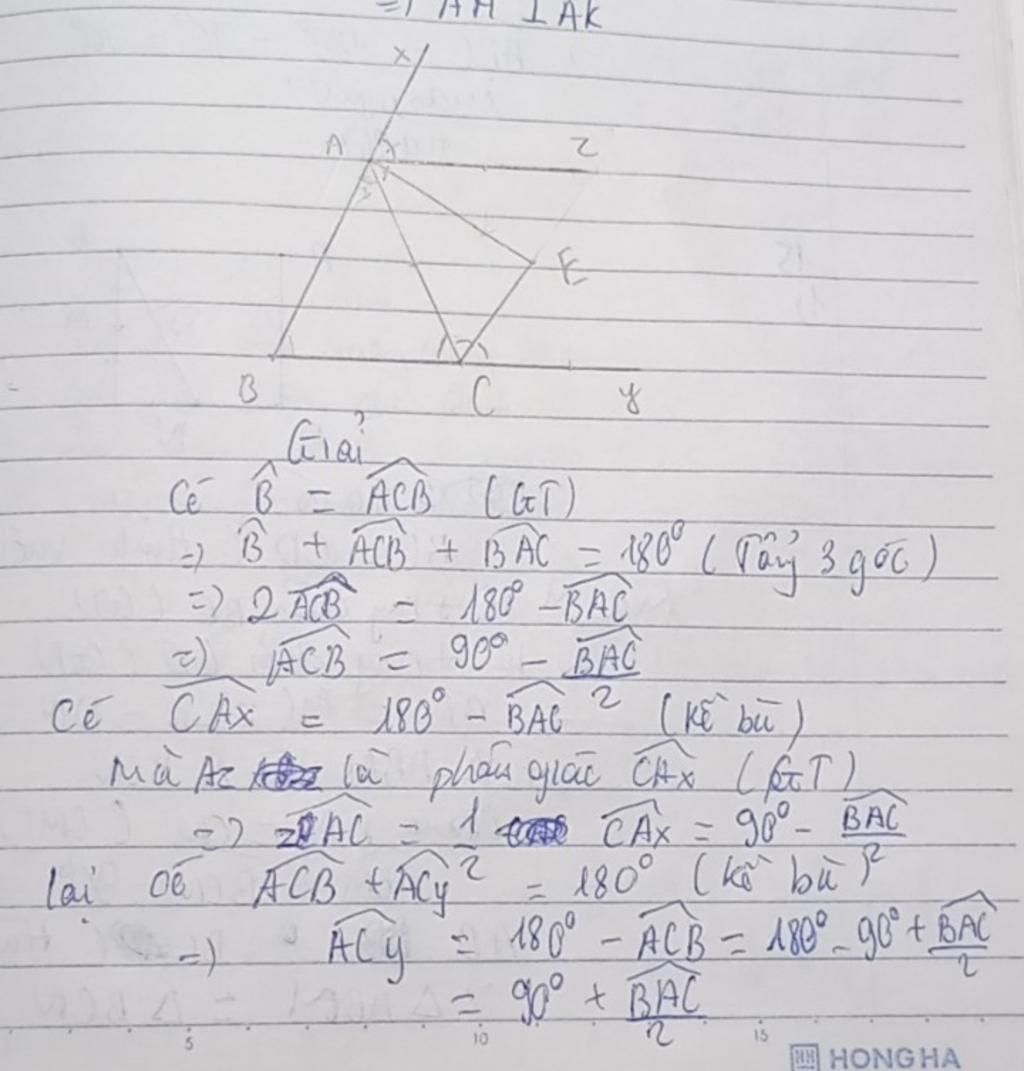 =) AM ⊥ AK
x
A
z
E
B
C
y
Giải
Có B̂ = \widehat{ACB} (GT)
=) B̂ + \widehat{ACB} + \widehat{BAC} = 180° (Tổng 3 góc)
=) 2\widehat{ACB} = 180° - \widehat{BAC}
=) \widehat{ACB} = 90° - \frac{\widehat{BAC}}{2}
Có \widehat{CAx} = 180° - \widehat{BAC} (kề bù)
Mà Az là phân giác \widehat{CAx} (GT)
=) \widehat{zAC} = \frac{1}{2} \widehat{CAx} = 90° - \frac{\widehat{BAC}}{2}
lại có \widehat{ACB} + \widehat{ACy} = 180° (kề bù)
=) \widehat{ACy} = 180° - \widehat{ACB} = 180° - 90° + \frac{\widehat{BAC}}{2}
= 90° + \frac{\widehat{BAC}}{2}
5 10 15
HONG HA